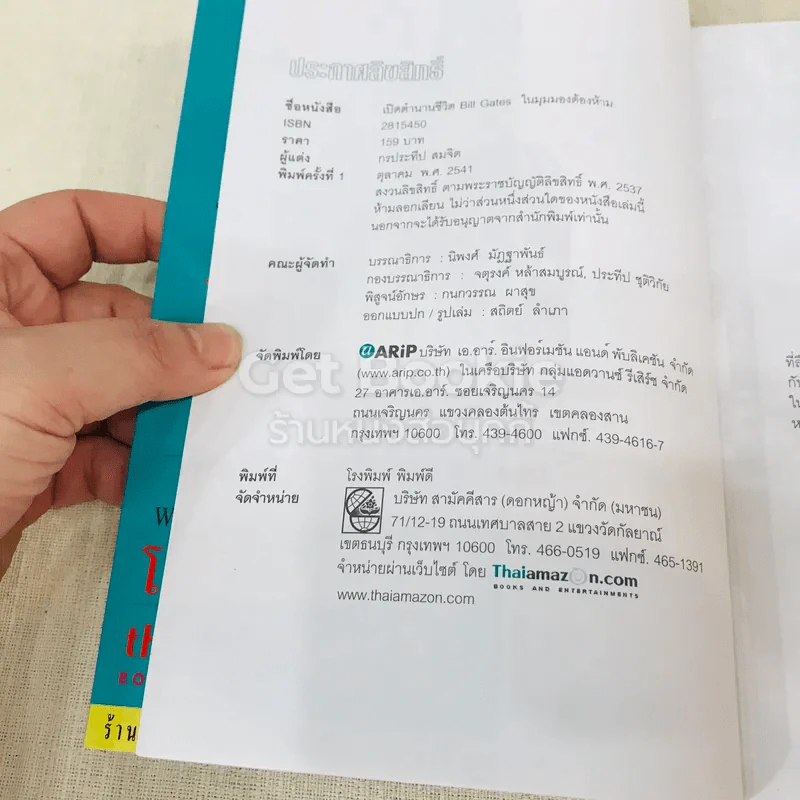 ประกาศลิขสิทธิ์
ชื่อหนังสือ เปิดตำนานชีวิต Bill Gates ในมุมมองต้องห้าม
ISBN 2815450
ราคา 159 บาท
ผู้แต่ง กรประทีป สมจิต
พิมพ์ครั้งที่ 1 ตุลาคม พ.ศ. 2541
สงวนลิขสิทธิ์ ตามพระราชบัญญัติลิขสิทธิ์ พ.ศ. 2537
ห้ามลอกเลียน ไม่ว่าส่วนหนึ่งส่วนใดของหนังสือเล่มนี้
นอกจากจะได้รับอนุญาตจากสำนักพิมพ์เท่านั้น
คณะผู้จัดทำ บรรณาธิการ : นิพงศ์ มัฏฐาพันธ์
กองบรรณาธิการ : จตุรงค์ หล้าสมบูรณ์, ประทีป ชุติวิกัย
พิสูจน์อักษร : กนกวรรณ ผาสุข
ออกแบบปก / รูปเล่ม : สถิตย์ ลำเภา
จัดพิมพ์โดย @ARiP บริษัท เอ.อาร์. อินฟอร์เมชัน แอนด์ พับลิเคชัน จำกัด
(www.arip.co.th) ในเครือบริษัท กลุ่มแอดวานซ์ รีเสิร์ช จำกัด
Get Bookie
27 อาคารเอ.อาร์. ซอยเจริญนคร 14
ถนนเจริญนคร แขวงคลองต้นไทร เขตคลองสาน
ร้านหนังสือบุ๊คกี้
กรุงเทพฯ 10600 โทร. 439-4600 แฟกซ์. 439-4616-7
พิมพ์ที่ โรงพิมพ์ พิมพ์ดี
จัดจำหน่าย บริษัท สามัคคีสาร (ดอกหญ้า) จำกัด (มหาชน)
71/12-19 ถนนเทศบาลสาย 2 แขวงวัดกัลยาณ์
เขตธนบุรี กรุงเทพฯ 10600 โทร. 466-0519 แฟกซ์. 465-1391
จำหน่ายผ่านเว็บไซต์ โดย Thaiamazon.com
BOOKS AND ENTERTAINMENTS
www.thaiamazon.com
ร้าน